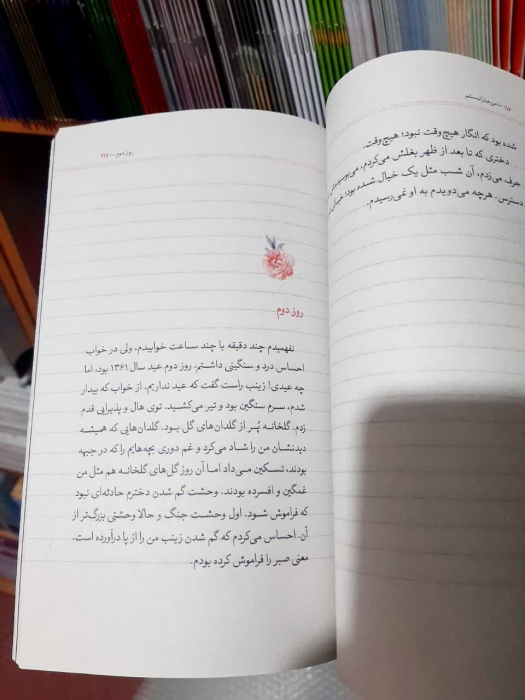 ۱۱۶ — من میترا نیستم
شده بود که انگار هیچ‌وقت نبود؛ هیچ‌وقت.
دختری که تا بعد از ظهر بغلش می‌کردم، می‌بوسیدمش،
حرف می‌زدم، آن شب مثل یک خیال شده بود؛ خیالی
دسترس. هرچه می‌دویدم به او نمی‌رسیدم.
روز دوم — ۱۱۷
روز دوم
نفهمیدم چند دقیقه یا چند ساعت خوابیدم، ولی در خواب
احساس درد و سنگینی داشتم. روز دوم عید سال ۱۳۶۱ بود، اما
چه عیدی! زینب راست گفت که عید نداریم. از خواب که بیدار
شدم، سرم سنگین بود و تیر می‌کشید. توی هال و پذیرایی قدم
زدم. گلخانه پُر از گلدان‌های گل بود. گلدان‌هایی که همیشه
دیدنشان من را شاد می‌کرد و غم دوری بچه‌هایم را که در جبهه
بودند، تسکین می‌داد اما آن روز گل‌های گلخانه هم مثل من
غمگین و افسرده بودند. وحشت گم شدن دخترم حادثه‌ای نبود
که فراموش شود. اول وحشت جنگ و حالا وحشتی بزرگ‌تر از
آن. احساس می‌کردم که گم شدن زینب من را از پا درآورده است.
معنی صبر را فراموش کرده بودم.